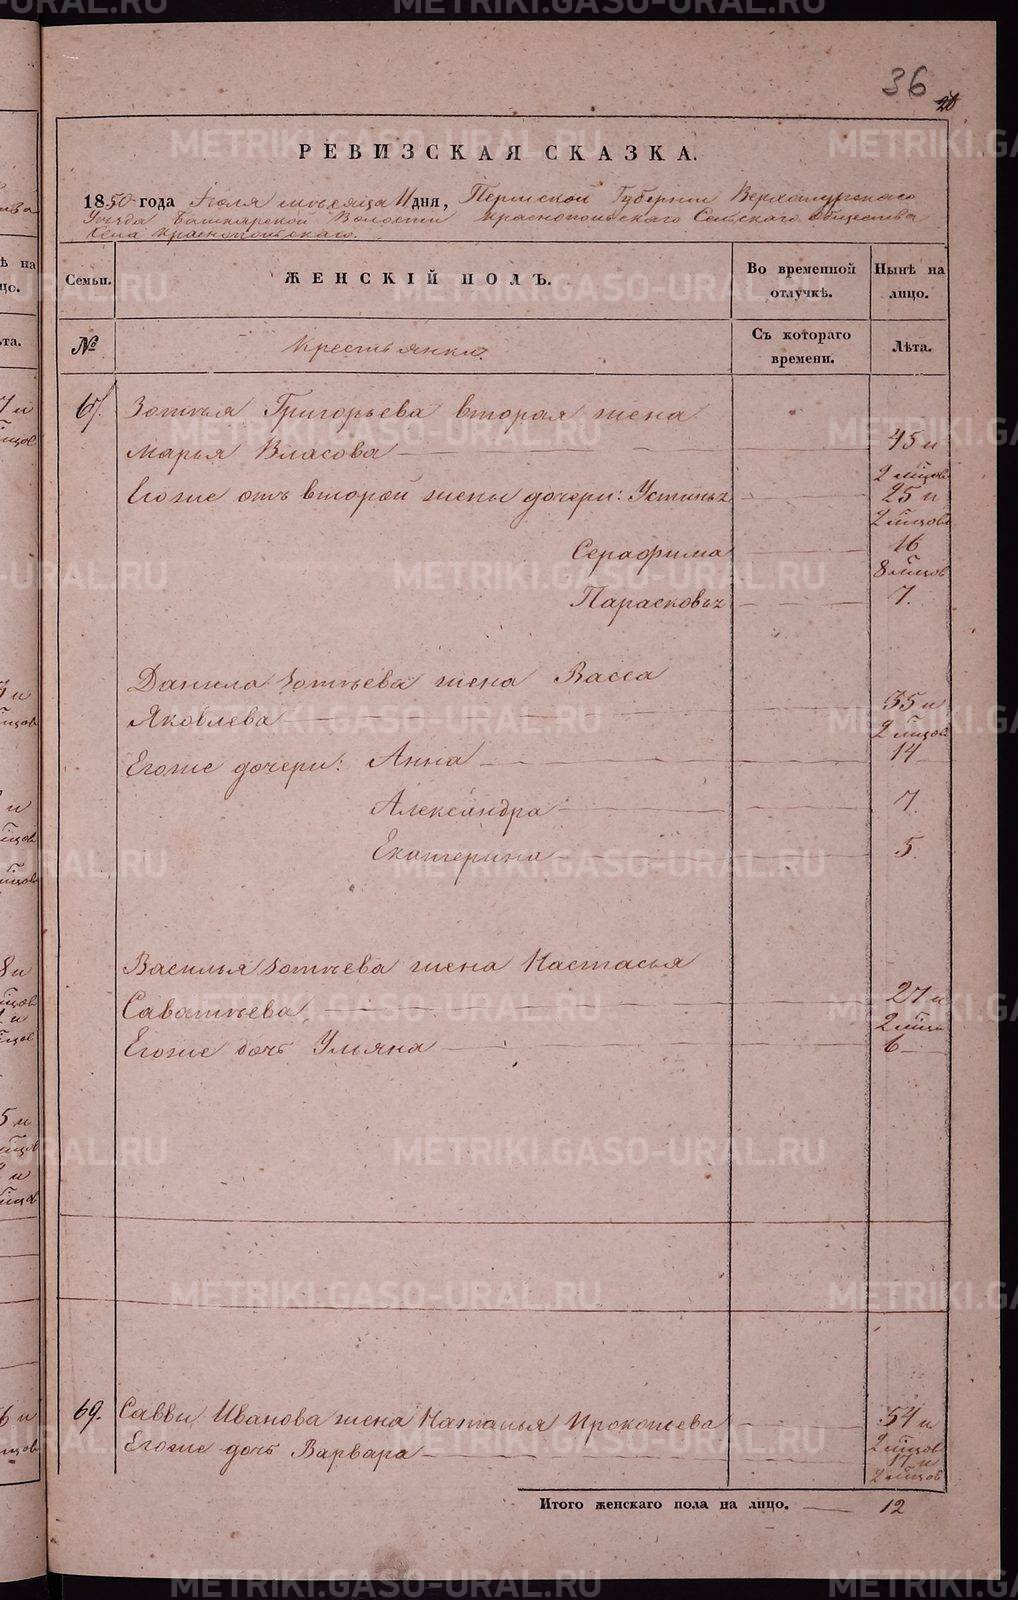 36
РЕВИЗСКАЯ СКАЗКА.
1850 года Июля мѣсяца 11 дня, Пермской Губернии Верхотурского
Уѣзда Башкарской Волости Краснопольского Сельского общества
Села Краснопольского.
Семьи. ЖЕНСКІЙ ПОЛЪ. Во временной отлучкѣ. Нынѣ на лицо.
№ Крестьянки. Съ котораго времени. Лѣта.
67. Зотѣя Григорьева вторая жена
Марья Власова 45 и
2 мѣсцов
Егоже отъ второй жены дочери: Устинья 25 и
2 мѣсцовъ
Серафима 16
8 мѣсцов
Парасковья 7.
Данила Зотѣева жена Васса
Яковлева 35 и
2 мѣсцов
Егоже дочери: Анна 14
Александра 7.
Екатерина 5.
Василья Зотѣева жена Настасья
Саватѣева 27 и
2 мѣсцо
Егоже дочь Ульяна 6
69. Савви Иванова жена Наталья Прокопьева 54 и
2 мѣсцов
Егоже дочь Варвара 17 и
2 мѣсцов
Итого женскаго пола на лицо. 12
METRIKI.GASO-URAL.RU